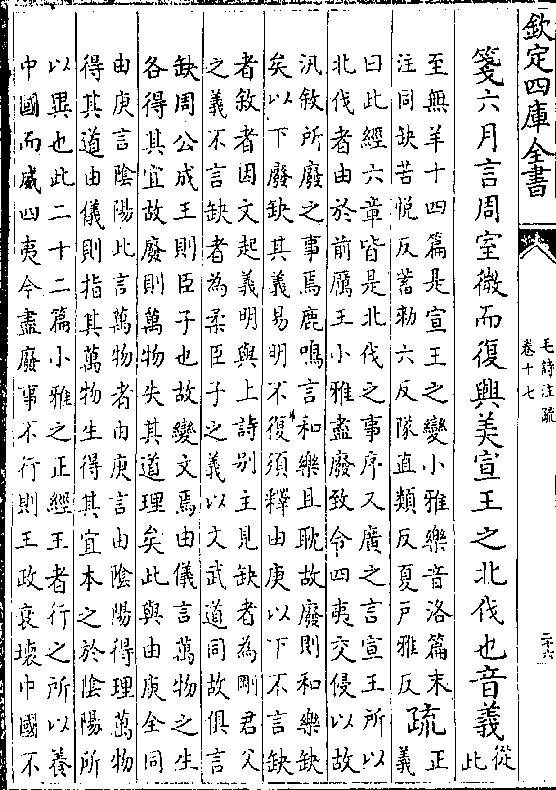 欽定四庫全書
毛詩注疏
卷十七
二十六
箋六月言周室微而復興美宣王之北伐也音義從此
至無羊十四篇是宣王之變小雅樂音洛篇末
注同缺苦悦反蓄勑六反隊直類反夏戸雅反
疏正義
曰此經六章皆是北伐之事序又廣之言宣王所以
北伐者由於前厲王小雅盡廢致令四夷交侵以故
汎敘所廢之事焉鹿鳴言和樂且耽故廢則和樂缺
矣以下廢缺其義易明不復須釋由庚以下不言缺
者敘者因文起義明與上詩别主見缺者為剛君父
之義不言缺者為柔臣子之義以文武道同故俱言
缺周公成王則臣子也故變文焉由儀言萬物之生
各得其宜故廢則萬物失其道理矣此與由庚全同
由庚言隂陽此言萬物者由庚言由隂陽得理萬物
得其道由儀則指其萬物生得其宜本之於隂陽所
以異也此二十二篇小雅之正經王者行之所以養
中國而威四夷今盡廢事不行則王政衰壞中國不